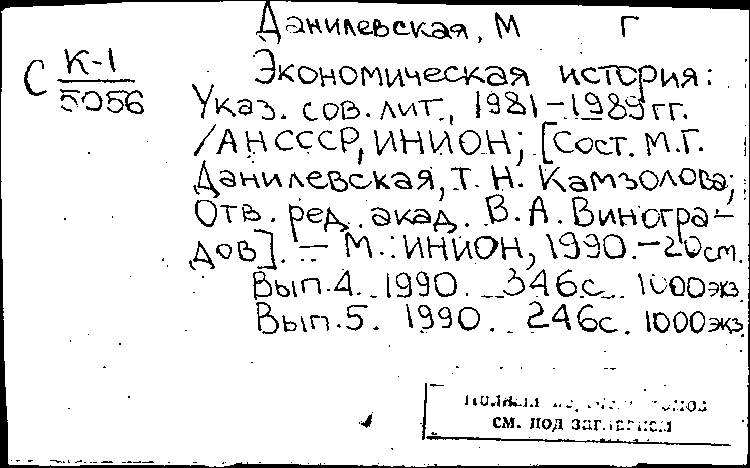 Данилевская, М Г
С К-1
5056
Экономическая история:
Указ. сов. лит., 1981-1989 гг.
/АН СССР, ИНИОН; [Сост. М.Г.
Данилевская, Т. Н. Камзолова;
Отв. ред. акад. В. А. Виногра-
дов]. — М.: ИНИОН, 1990.-20см.
Вып.4. 1990. 346с. 1000экз.
Вып.5. 1990. 246с. 1000экз.
полная
см. под заглавием